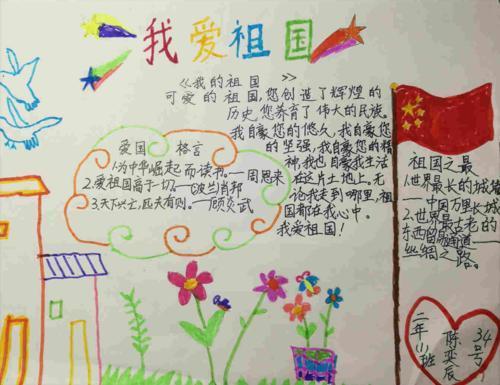 我爱祖国
《我的祖国》
可爱的祖国,您创造了辉煌的
历史,您养育了伟大的民族。
我自豪您的悠久,我自豪您
的坚强,我自豪您的精
神,我也自豪我生活
在这片土地上,无
论我走到哪里,祖
国都在我心中。
我爱祖国!
爱国 格言
1.为中华崛起而读书。—周恩来
2.爱祖国高于一切。—波兰肖邦
3.天下兴亡,匹夫有则。—顾炎武
祖国之最
1.世界最长的城墙
—中国万里长城
2.世界最古老的
东西贸易通道——
丝绸之路。
二年(1)班
陈奕辰
34号